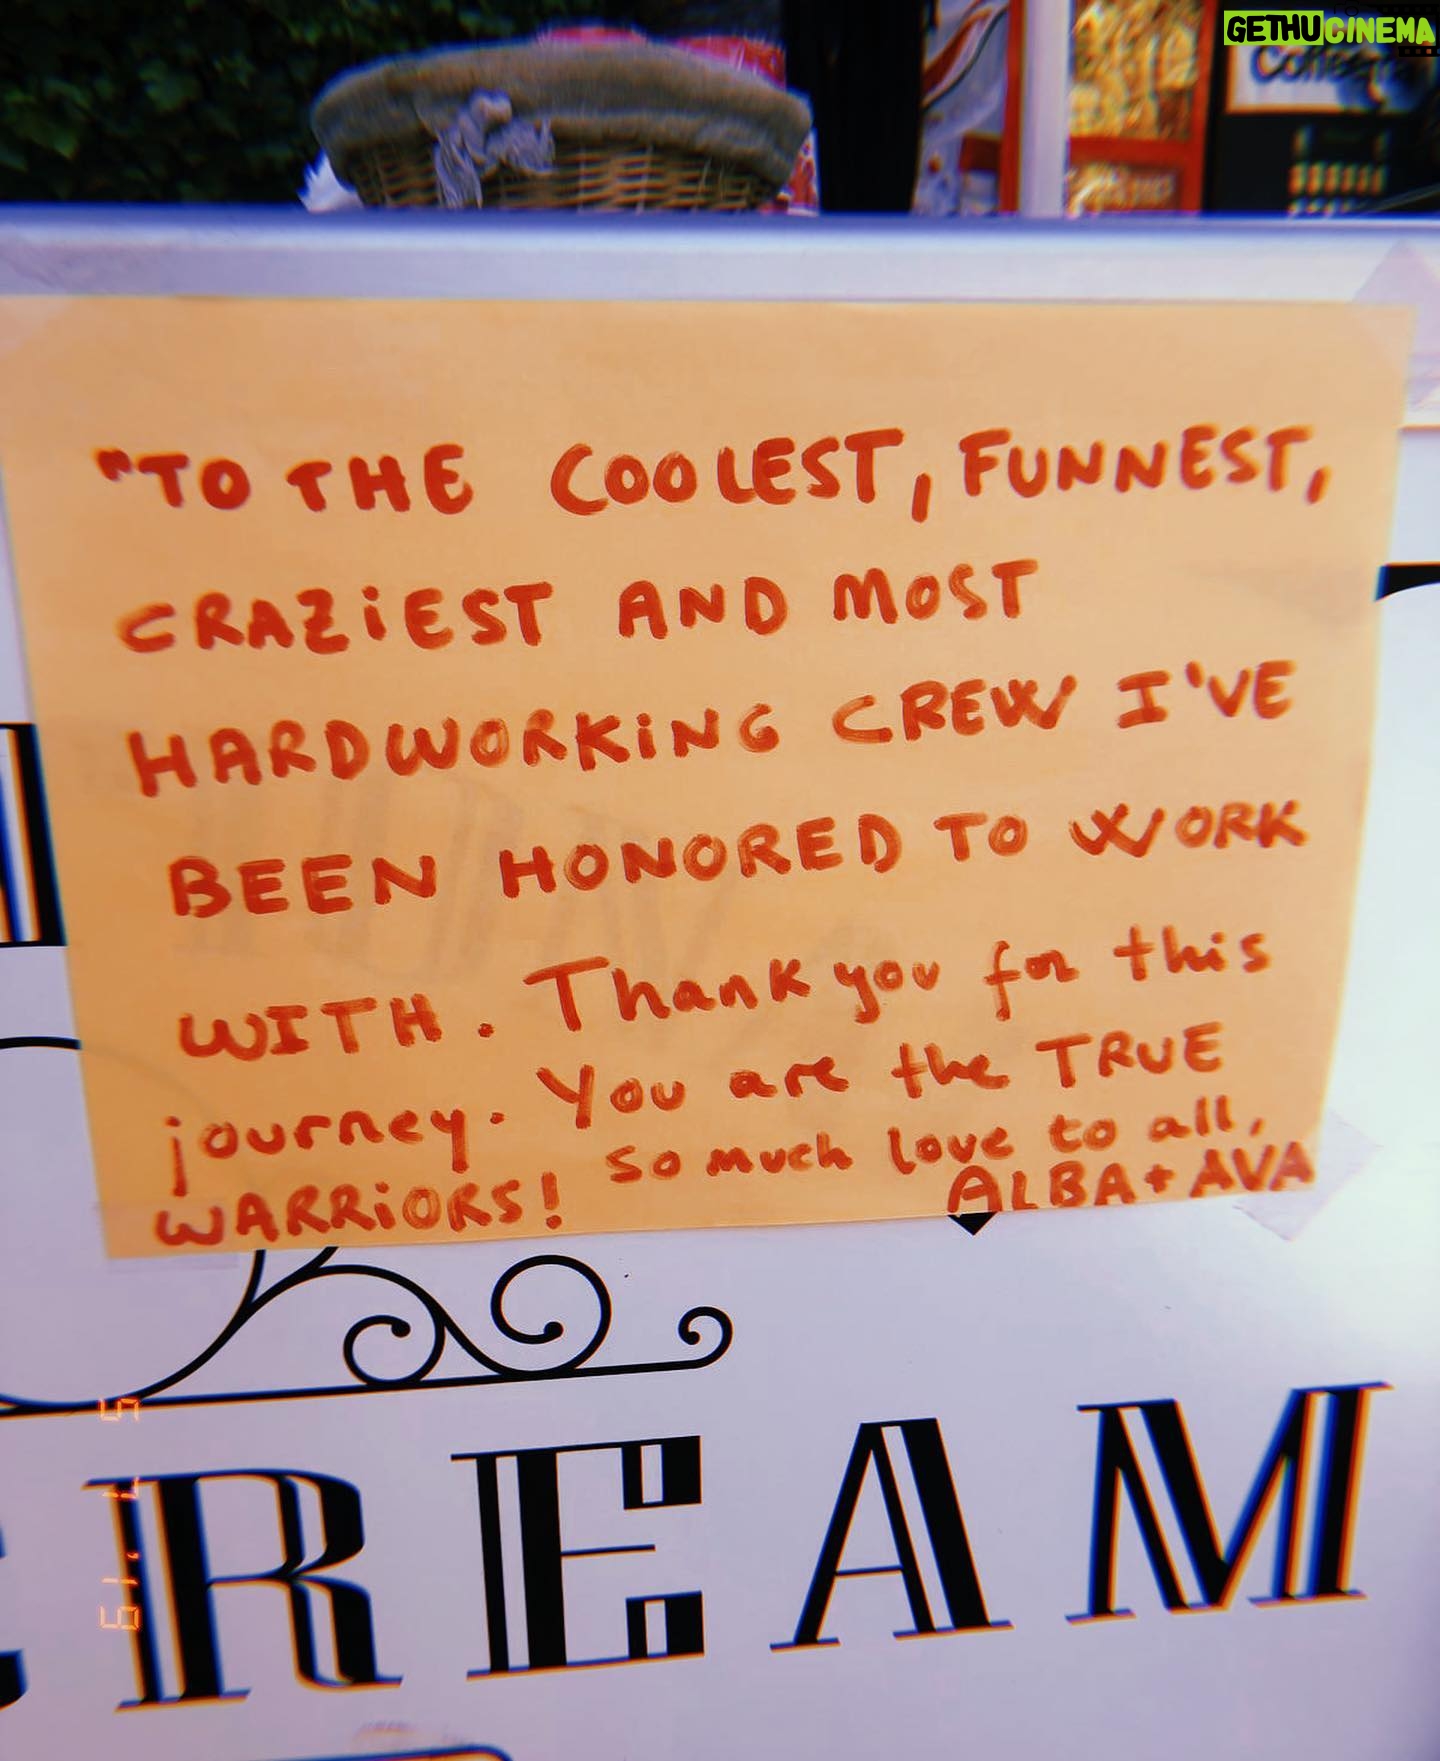 GETHUCINEMA
Coffee
"TO THE COOLEST, FUNNEST,
CRAZiEST AND MOST
HARDWORKiNG CREW I'VE
BEEN HONORED TO WORK
WITH. Thank you for this
journey. You are the TRUE
WARRiORS! So much love to all,
ALBA + AVA
REAM